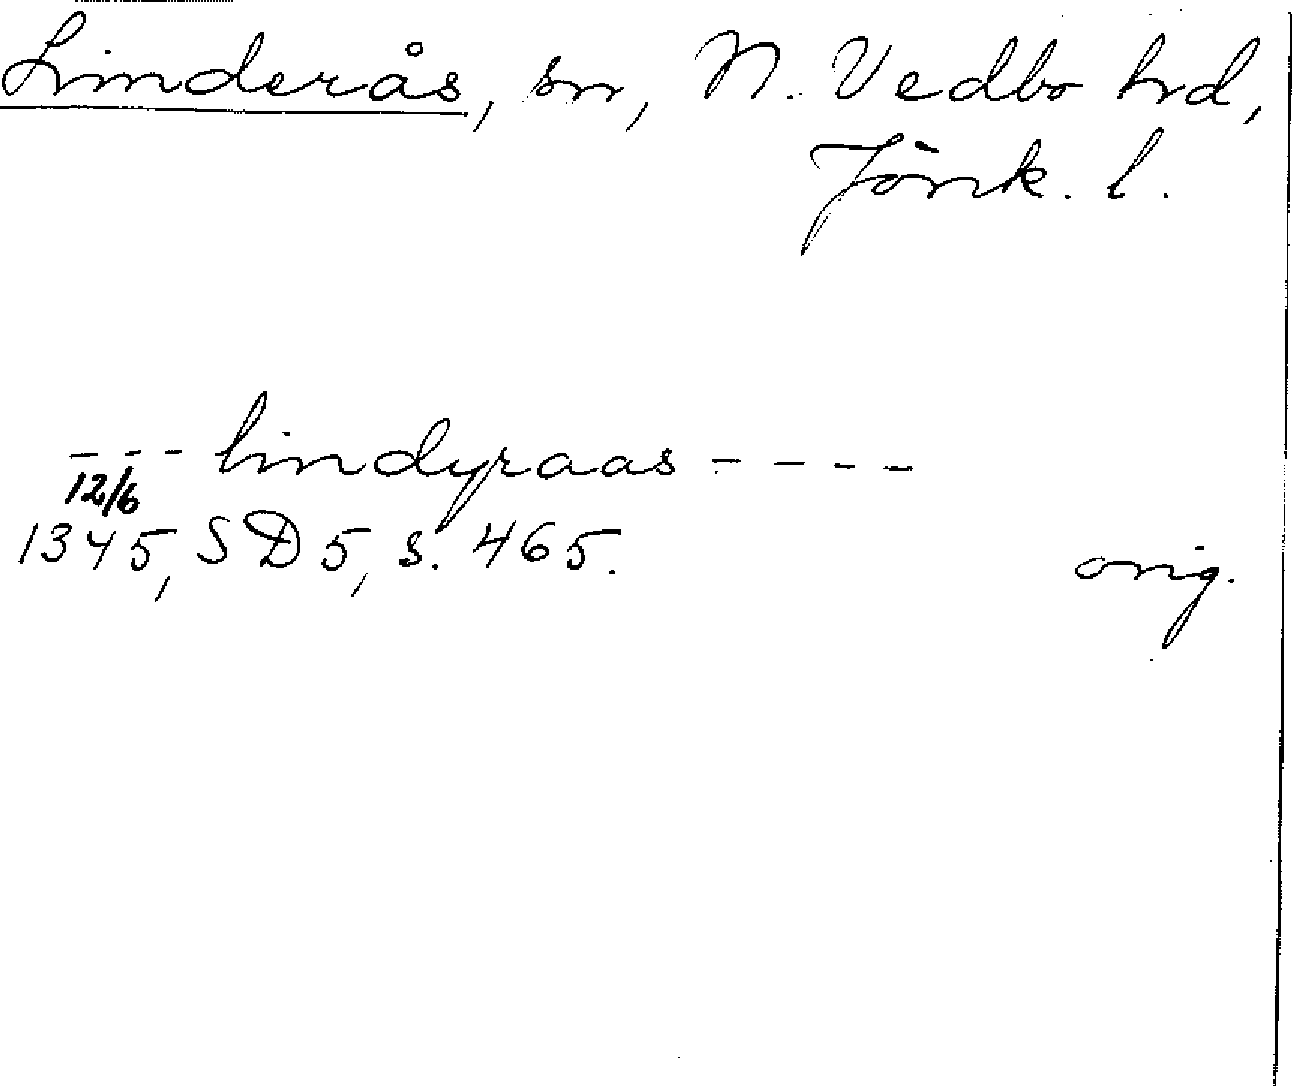 Linderås, sn, N. Vedbo hd,
Jönk. l.
- - - lindyraas - - - -
12/6
1345, SD 5, s. 465.
orig.